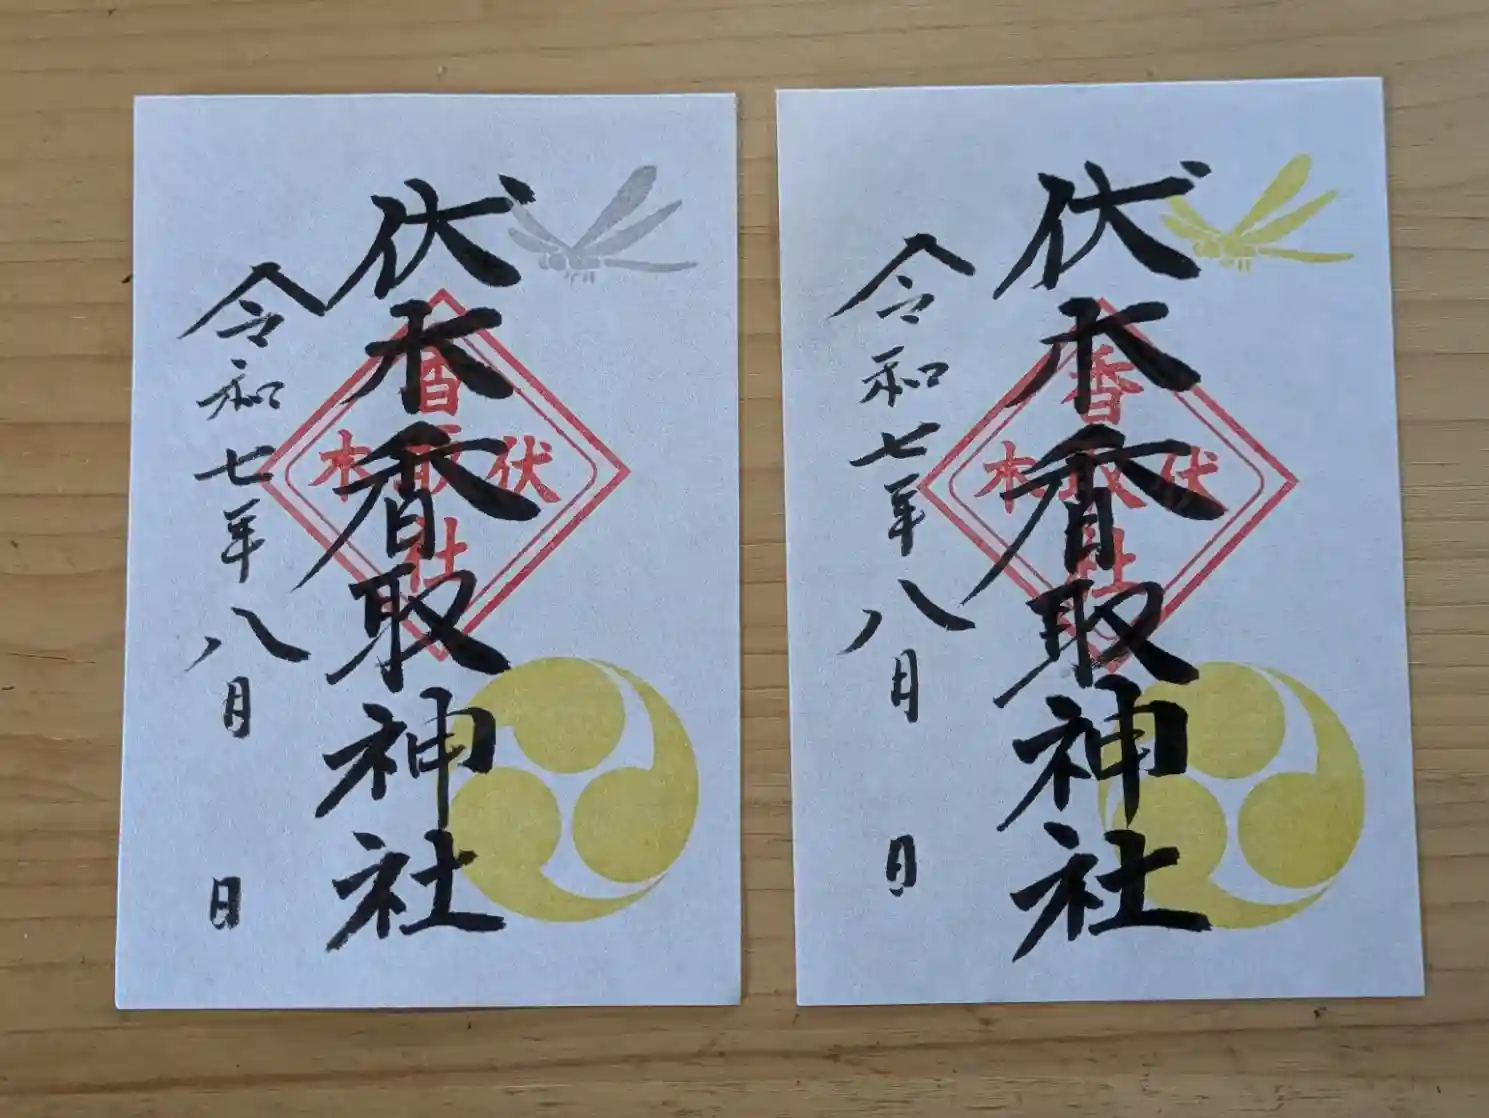 伏木香取神社
令和七年八月 日
香
伏取木
社
伏木香取神社
令和七年八月 日
香
伏取木
社